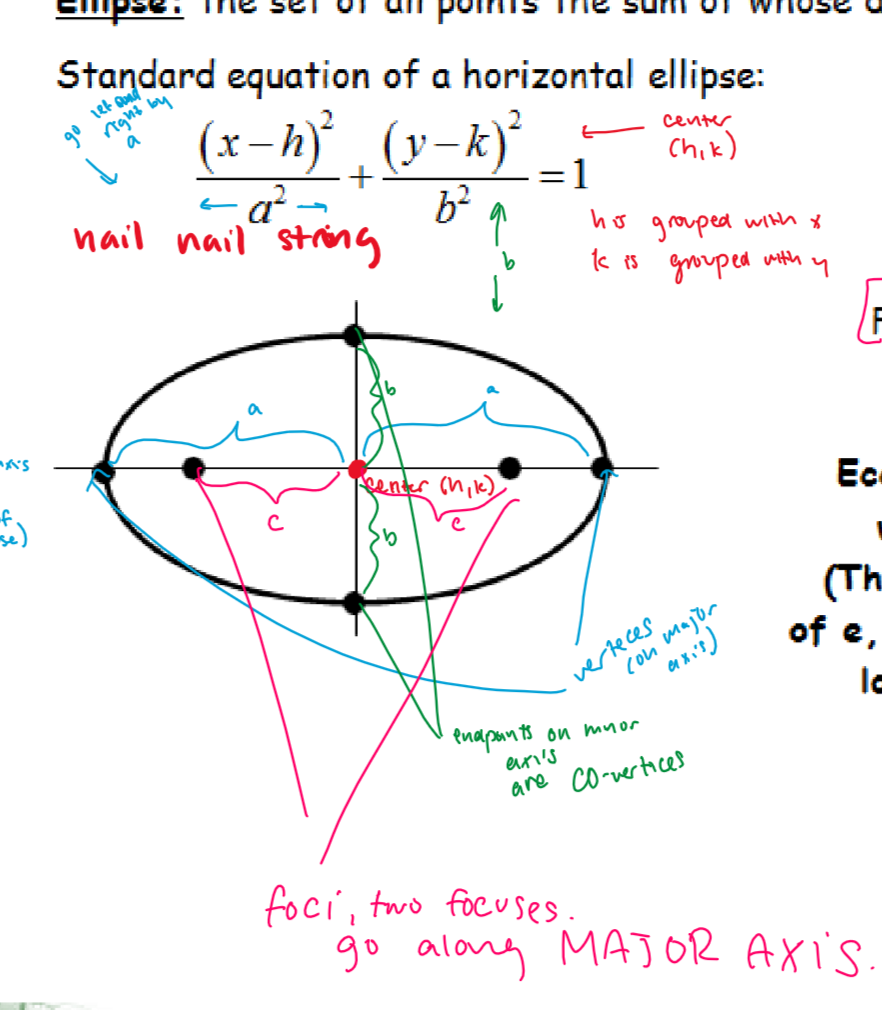 Ellipse: The set of all points the sum of whose d
Standard equation of a horizontal ellipse:
go let and right by a
(x-h)² / a² + (y-k)² / b² = 1
center
(h,k)
nail nail string
b
h is grouped with x
k is grouped with y
F
b
a
a
axis
center (h,k)
c
c
b
f
se)
Ecc
(Th
of e,
lo
verteces
(on major
axis)
endpoints on minor
axis
are co-vertices
foci, two focuses.
go along MAJOR AXIS.